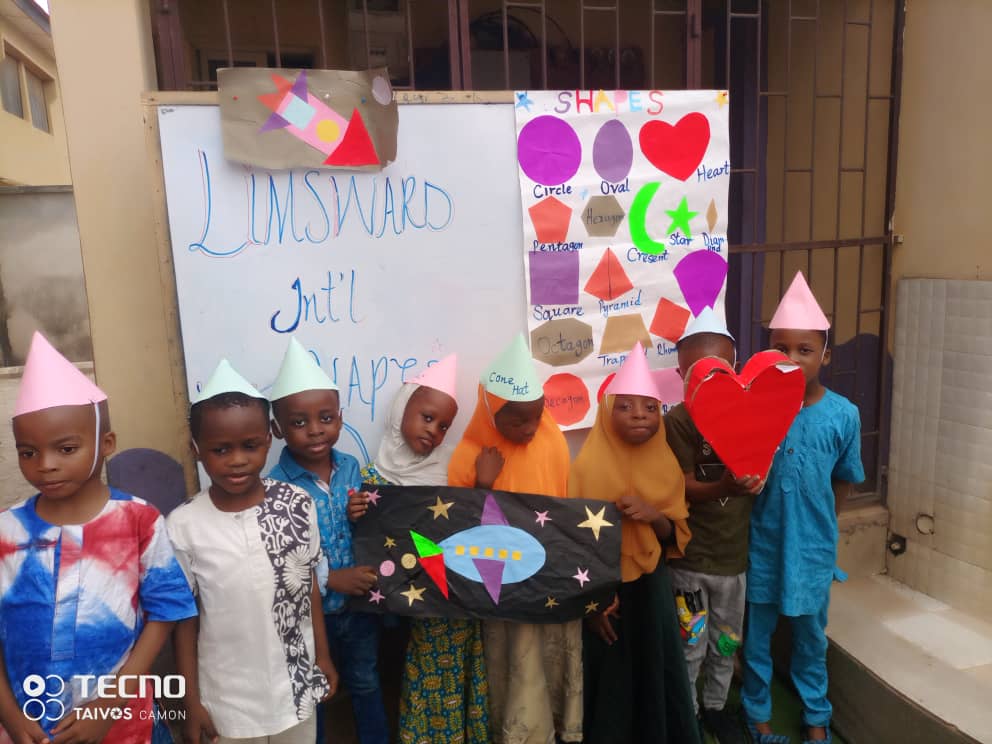 LIMSWARD
Int'l
SHAPES
Circle
Oval
Heart
Pentagon
Hexagon
Cresent
Star
Square
Pyramid
Octagon
Decagon
CONE
HAT
TECNO
TAIVOS CAMON